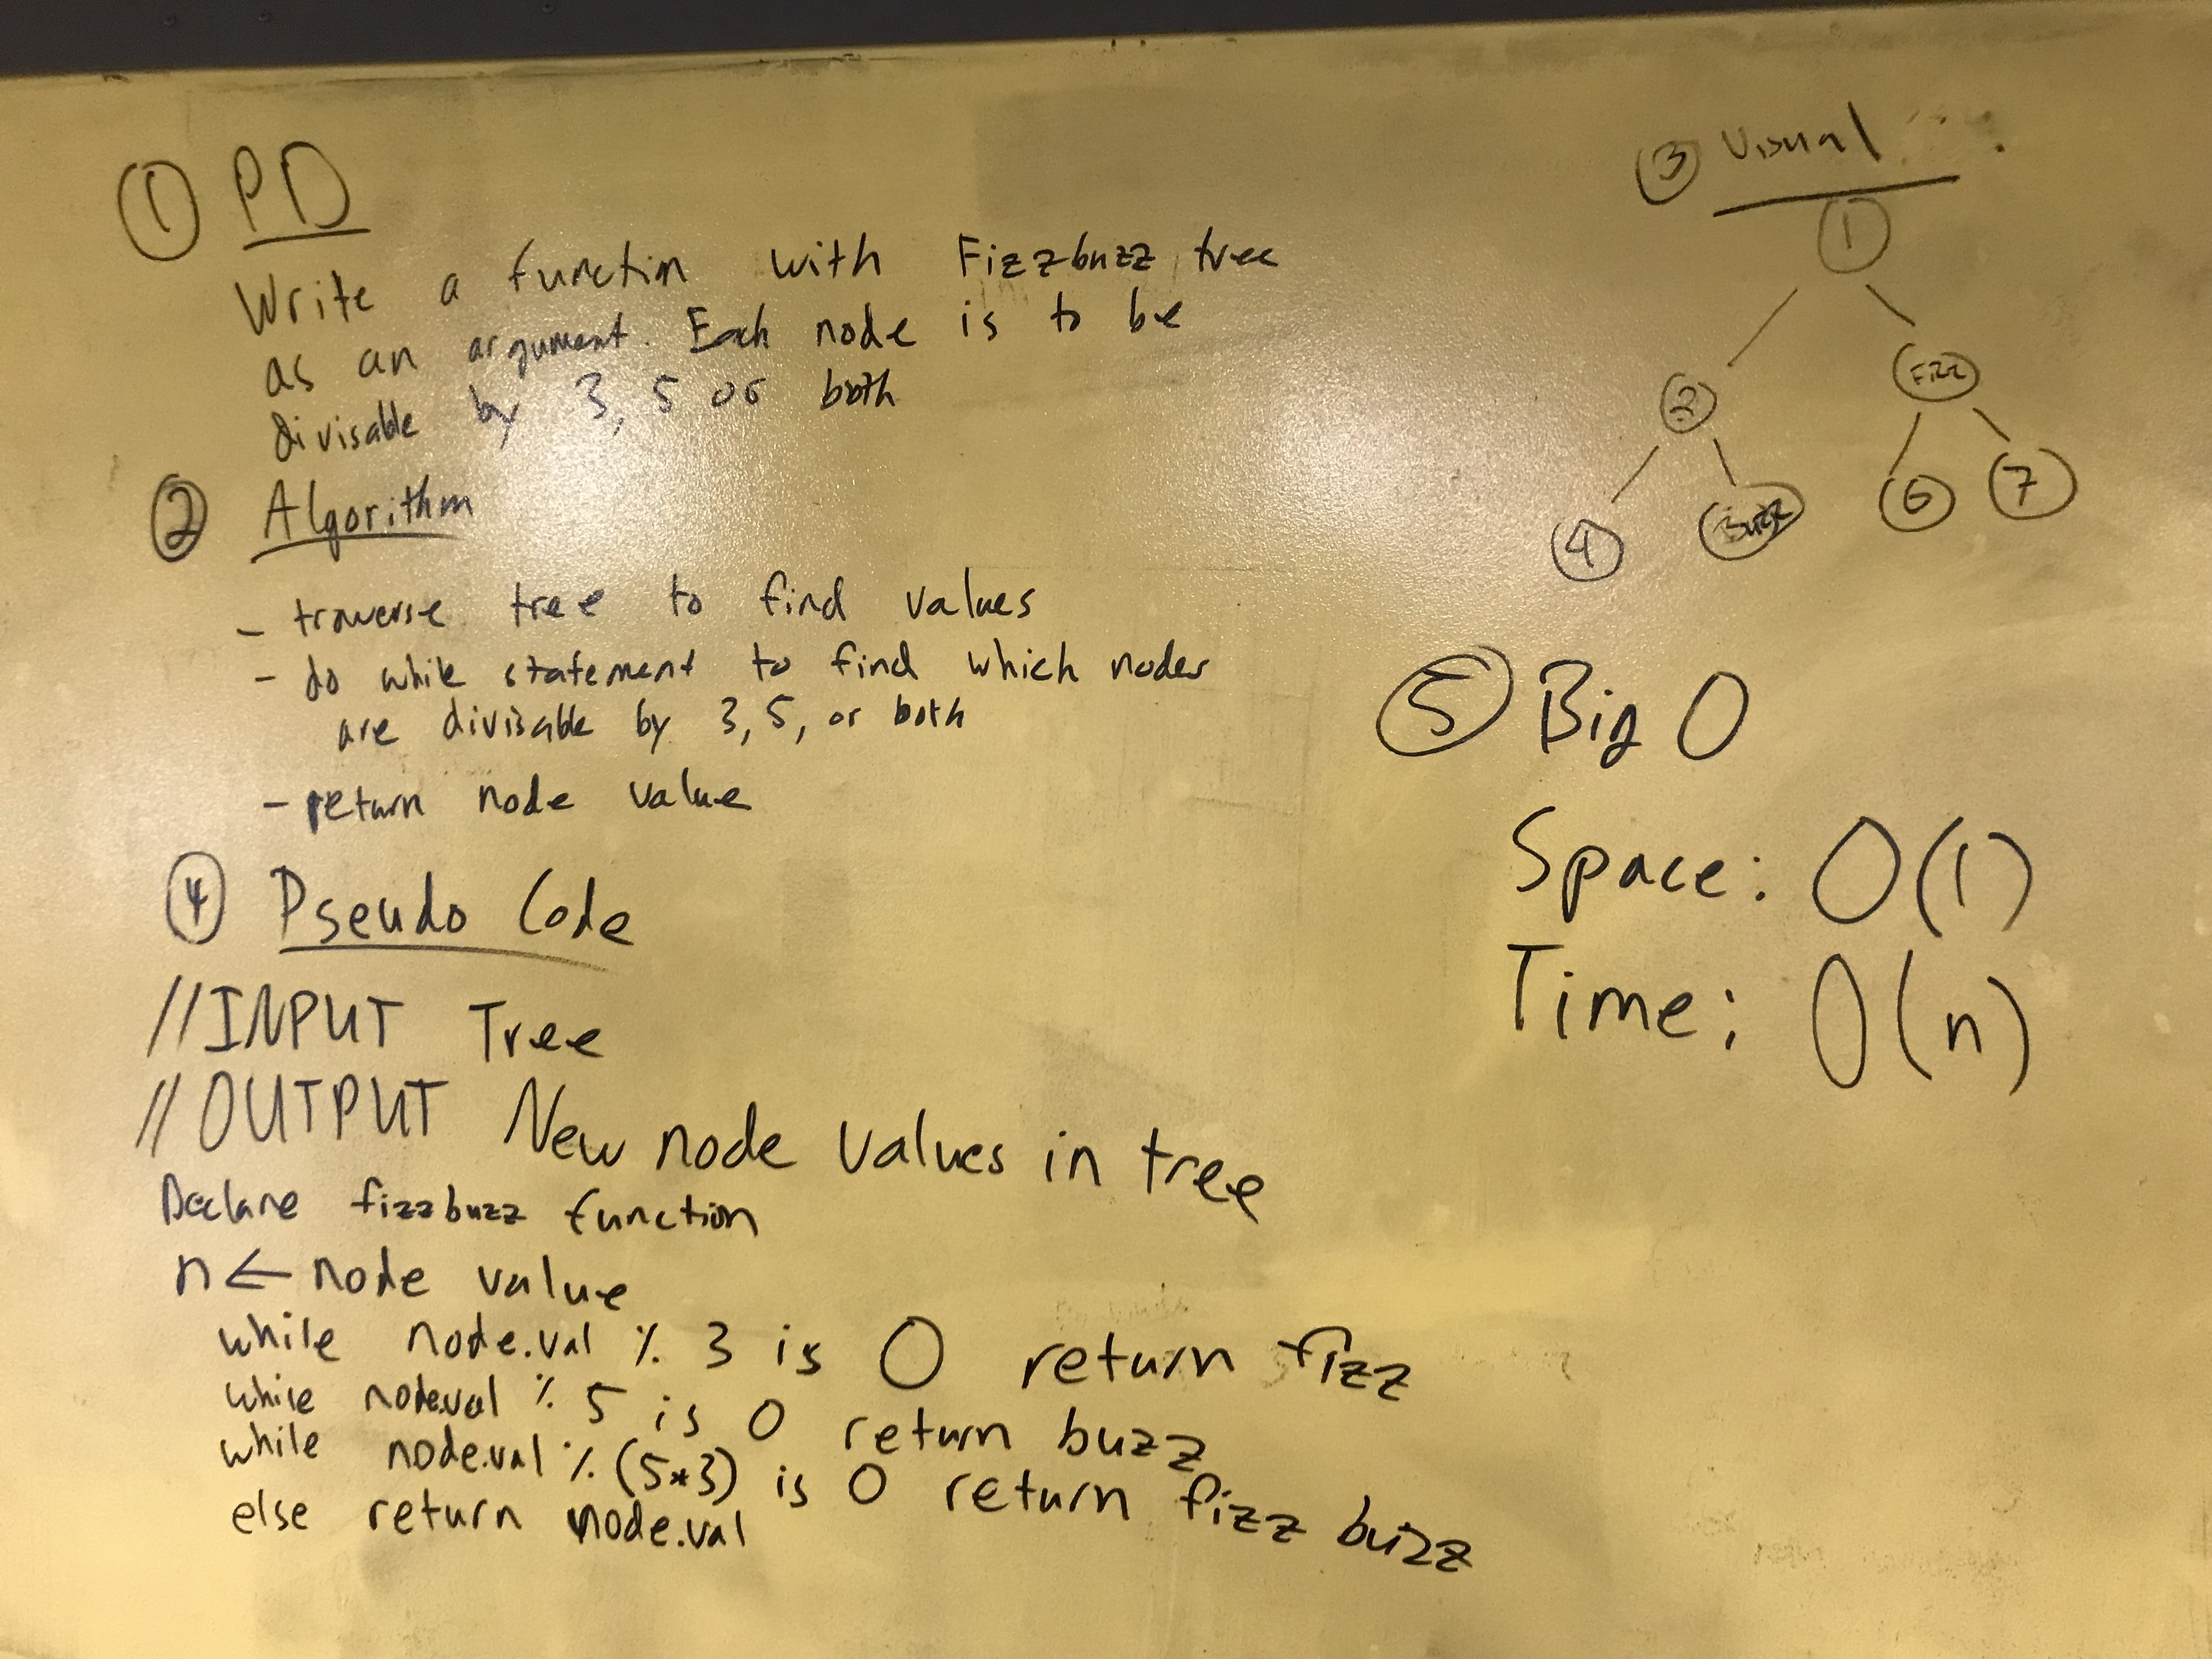 ① PD
Write a function with Fizzbuzz tree
as an argument. Each node is to be
divisable by 3, 5 or both
② Algorithm
- traverse tree to find values
- do while statement to find which nodes
are divisable by 3, 5, or both
- return node value
④ Pseudo Code
//INPUT Tree
//OUTPUT New node values in tree
Declare fizzbuzz function
n ← node value
while node.val % 3 is 0 return fizz
while node.val % 5 is 0 return buzz
while node.val % (5*3) is 0 return fizz buzz
else return node.val
③ Visual
1
2 Fizz
4 Buzz 6 7
⑤ Big O
Space: O(1)
Time: O(n)